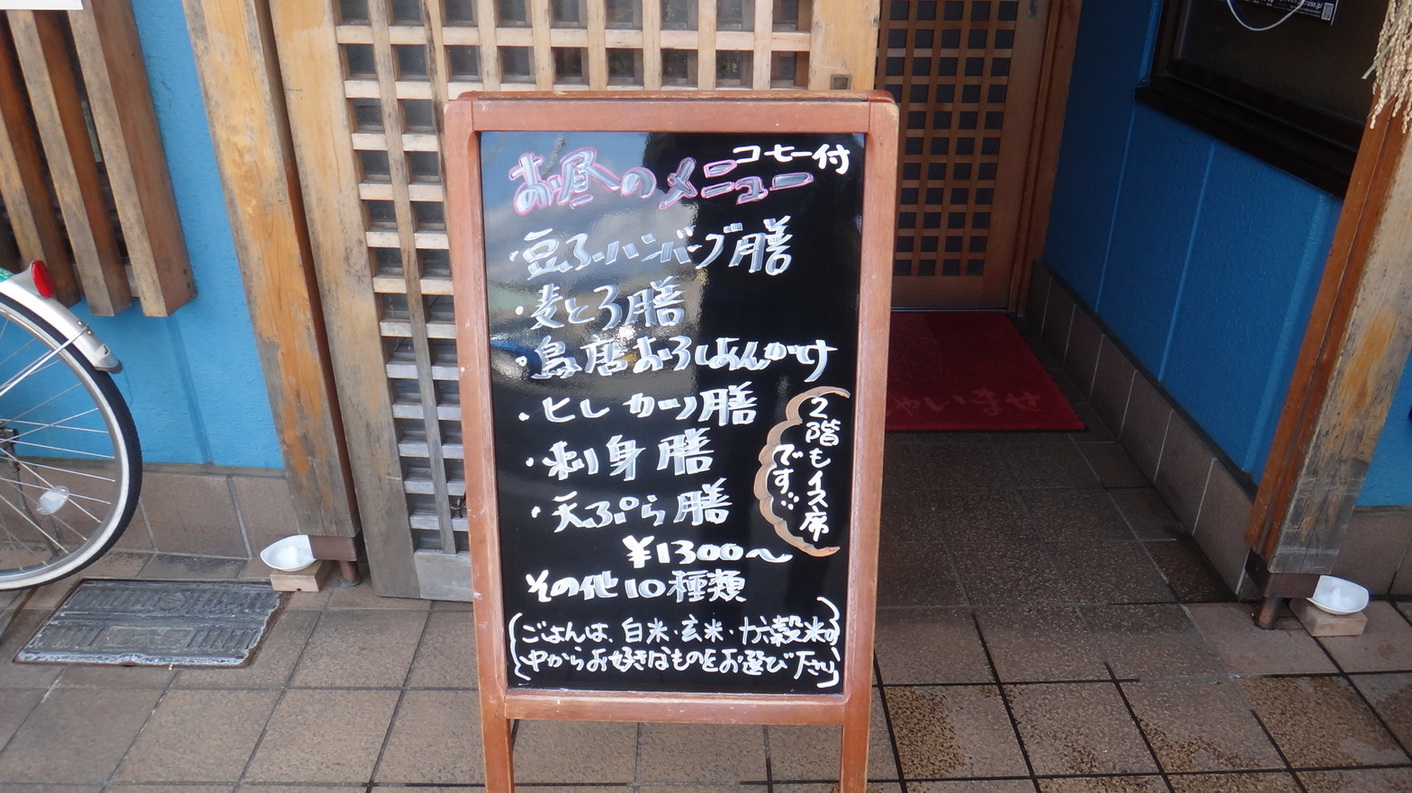 コーヒー付
お昼のメニュー
・豆ふハンバーグ膳
・麦とろ膳
・鳥唐おろしあんかけ
・ヒレカツ膳
・刺身膳
・天ぷら膳
¥1300〜
2階もイス席
です
その他10種類
(ごはんは、白米・玄米・十六穀米の
中からお好きなものをお選び下さい)
ゃいませ